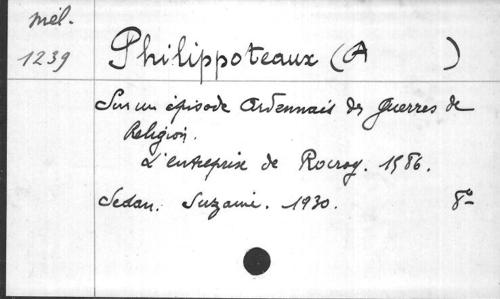 Mél.
1239
Philippoteaux (A )
Sur un épisode Ardennais des guerres de
Religion.
L'entreprise de Rocroy. 1586.
Sedan. Suzaine. 1930. 8°